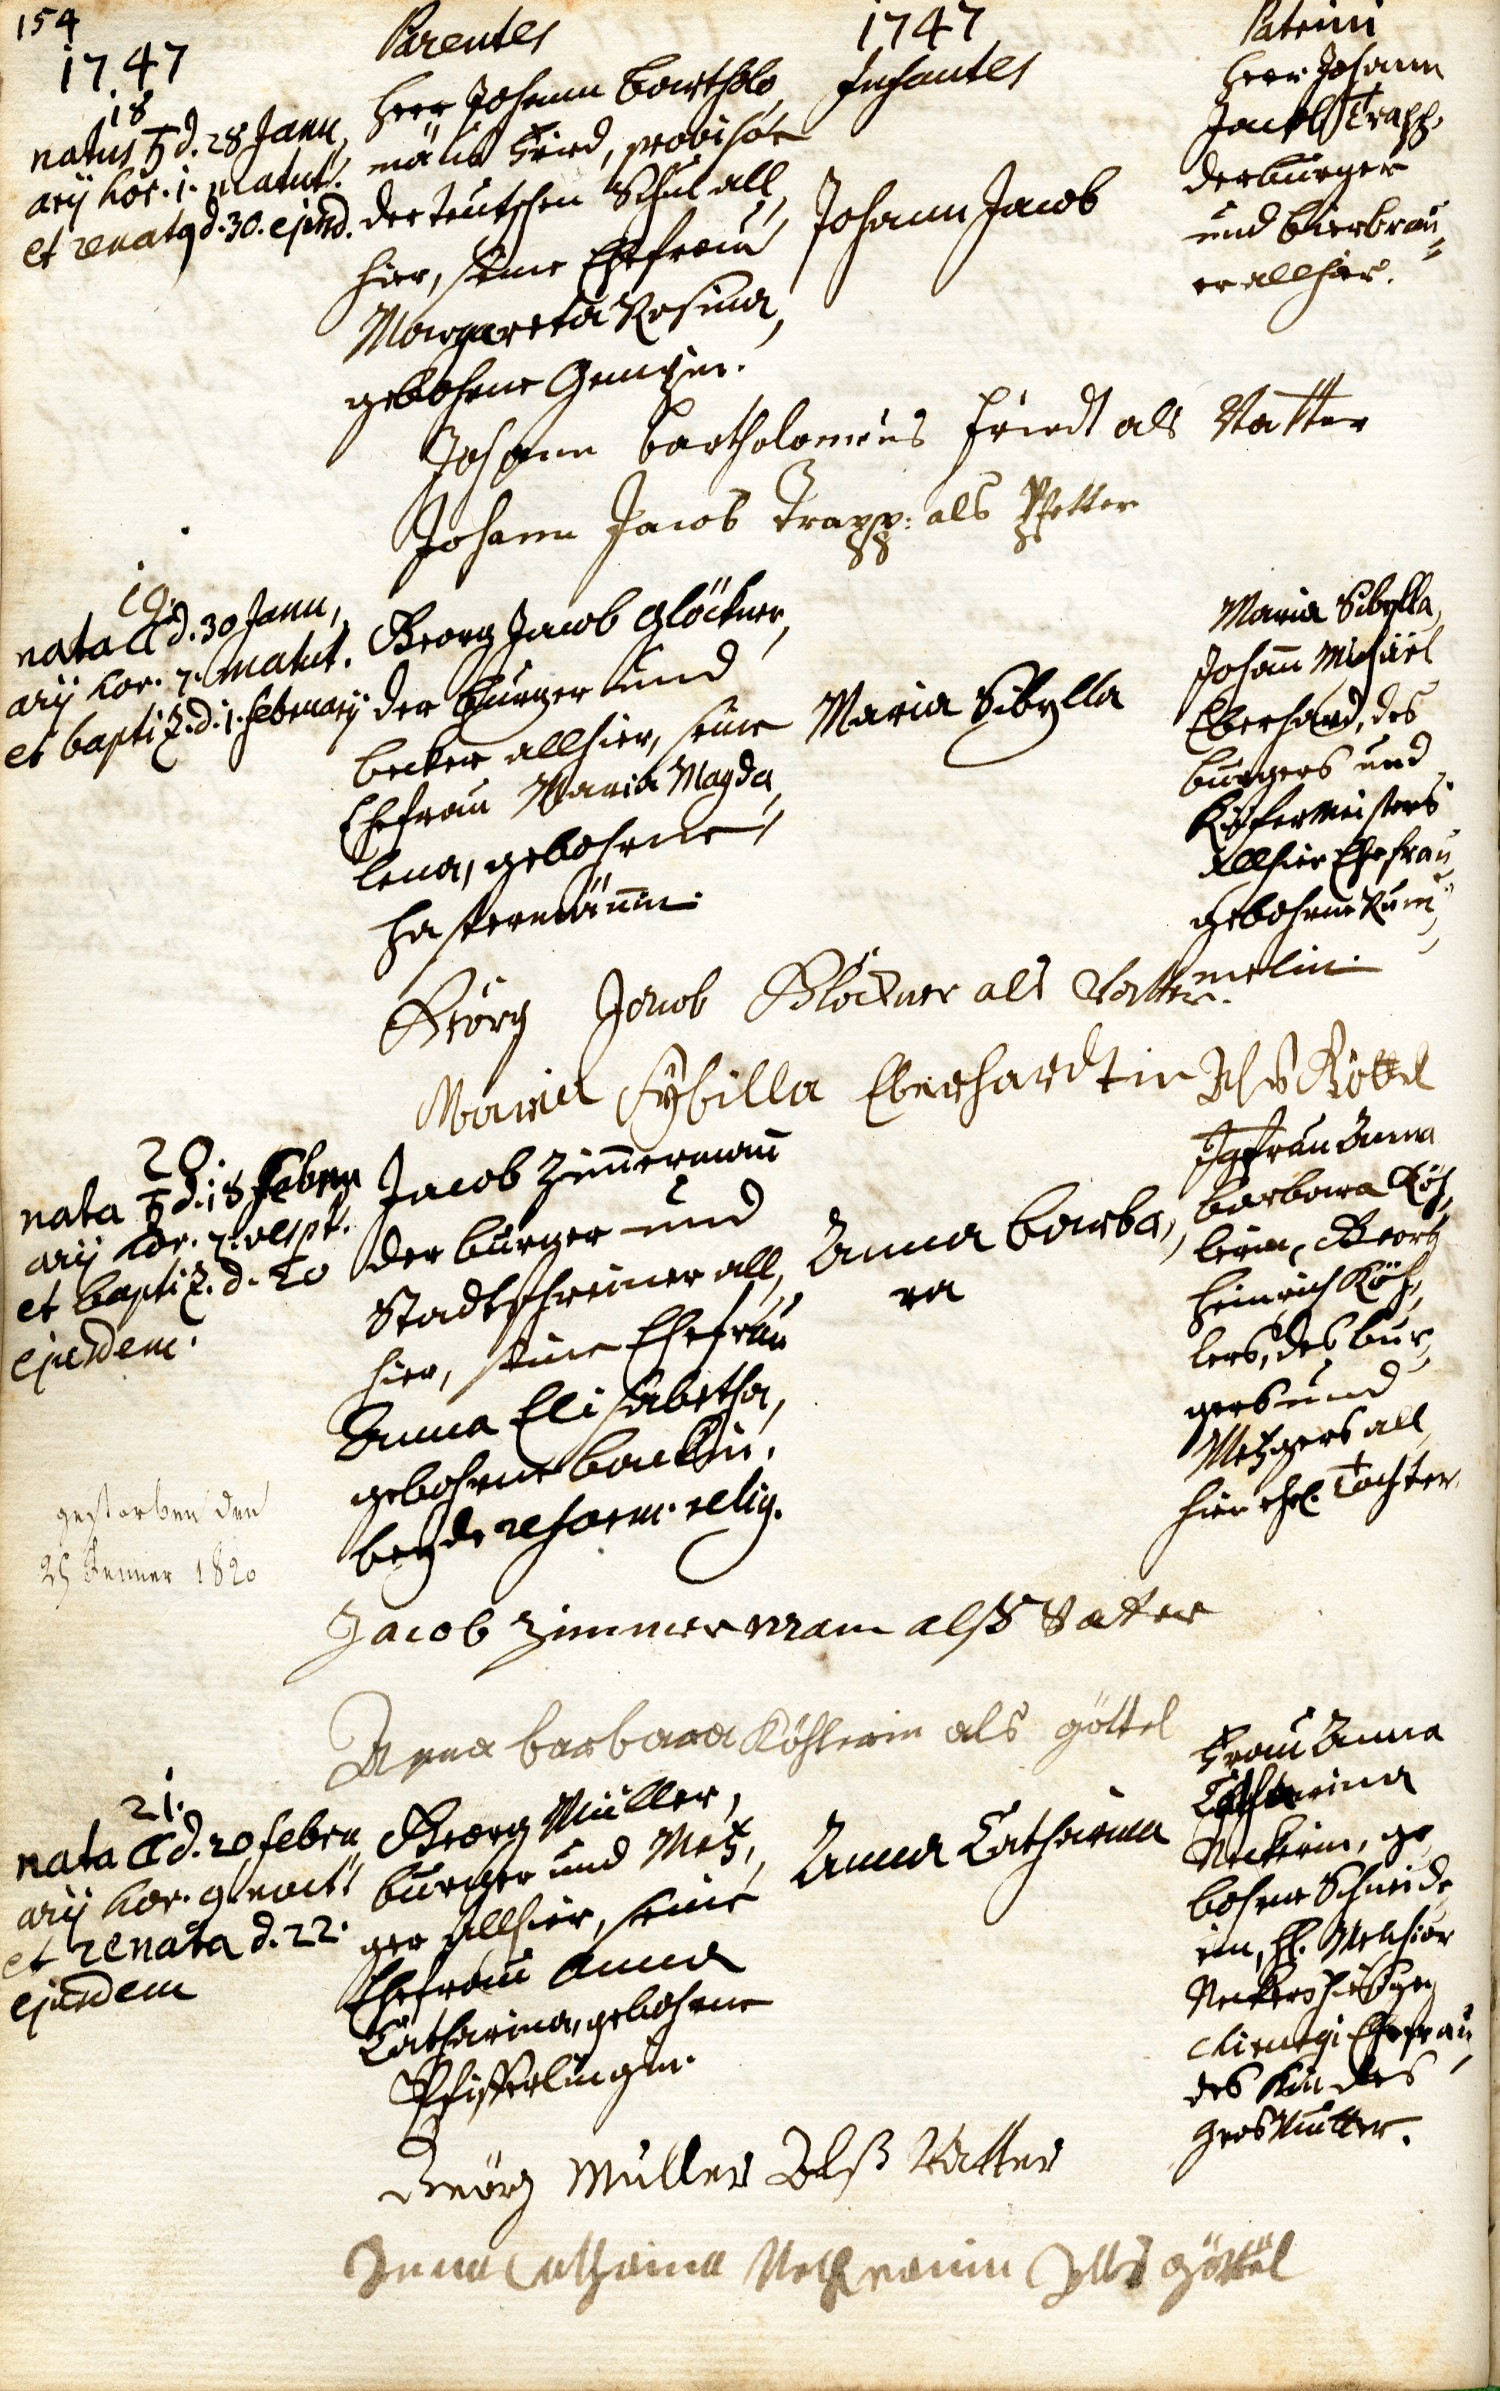 154
1747
Parentes
1747
Infantes
Patrini
18
natus ♄ d. 28 Janu,
arij hor. 1. matut.
et renatq d. 30. ejusd.
Herr Johann Bartholo,
mäus Fried, provisor
der teutschen Schul all,
hier, seine Ehefrau
Margareta Rosina,
gebohrne
Johann Jacob
Herr Johann
Jacob Trapp,
der burger
und bierbrau,
er allhier.
Johann Bartholomeus Friedt als Vatter
Johann Jacob Trapp: als Pfetter
19.
nata ☾ d. 30 Janu,
arij hor. 7. matut.
et baptiz. d. 1. februarij
Georg Jacob Glöckner,
der burger und
becker allhier, seine
Ehefrau Maria Magda,
lena, gebohrne
Hastermännin.
Maria Sibylla
Maria Sibylla,
Johann Michael
Eberhard, des
burgers und
Kiefermeisters
allhier Ehefrau
gebohrne Rüm,
melin.
Geörg Jacob Glöckner als Vatter.
Maria Sybilla Eberhardtin Als Göttel
20.
nata ♄ d. 18 Febru
arij hor. 7. vespt.
et baptiz. d. 20
ejusdem.
Jacob Zimmermann
der burger und
Stadtschreiner all,
hier, seine Ehefrau
Anna Elisabetha,
gebohrne Backin,
beyde reform. relig.
Anna Barba,
ra
Jgfrau Anna
Barbara Köh,
lerin, Georg
Heinrich Köh,
lers, des bur,
gers und
Metzgers all,
hier ehel. Tochter.
gestorben den
25 Jenner 1820
Jacob Zimmermann alß Vatter
Anna barbara Köhlerin als göttel
21.
nata ☾ d. 20 febru
arij hor. 9. noct.
et renata d. 22.
ejusdem
Georg Müller,
burger und Metz,
ger allhier, seine
Ehefrau Anna
Catharina, gebohrne
Pfifferlingin.
Anna Catharina
Frau Anna
Catharina
Neckerin, ge,
bohrne Schneide
rin, H. Melchior
Neckers
Chirurgi Ehefrau,
des Kindes
Grosmutter.
Geörg Müller Alß Vatter
Anna Catharina Als Göttel